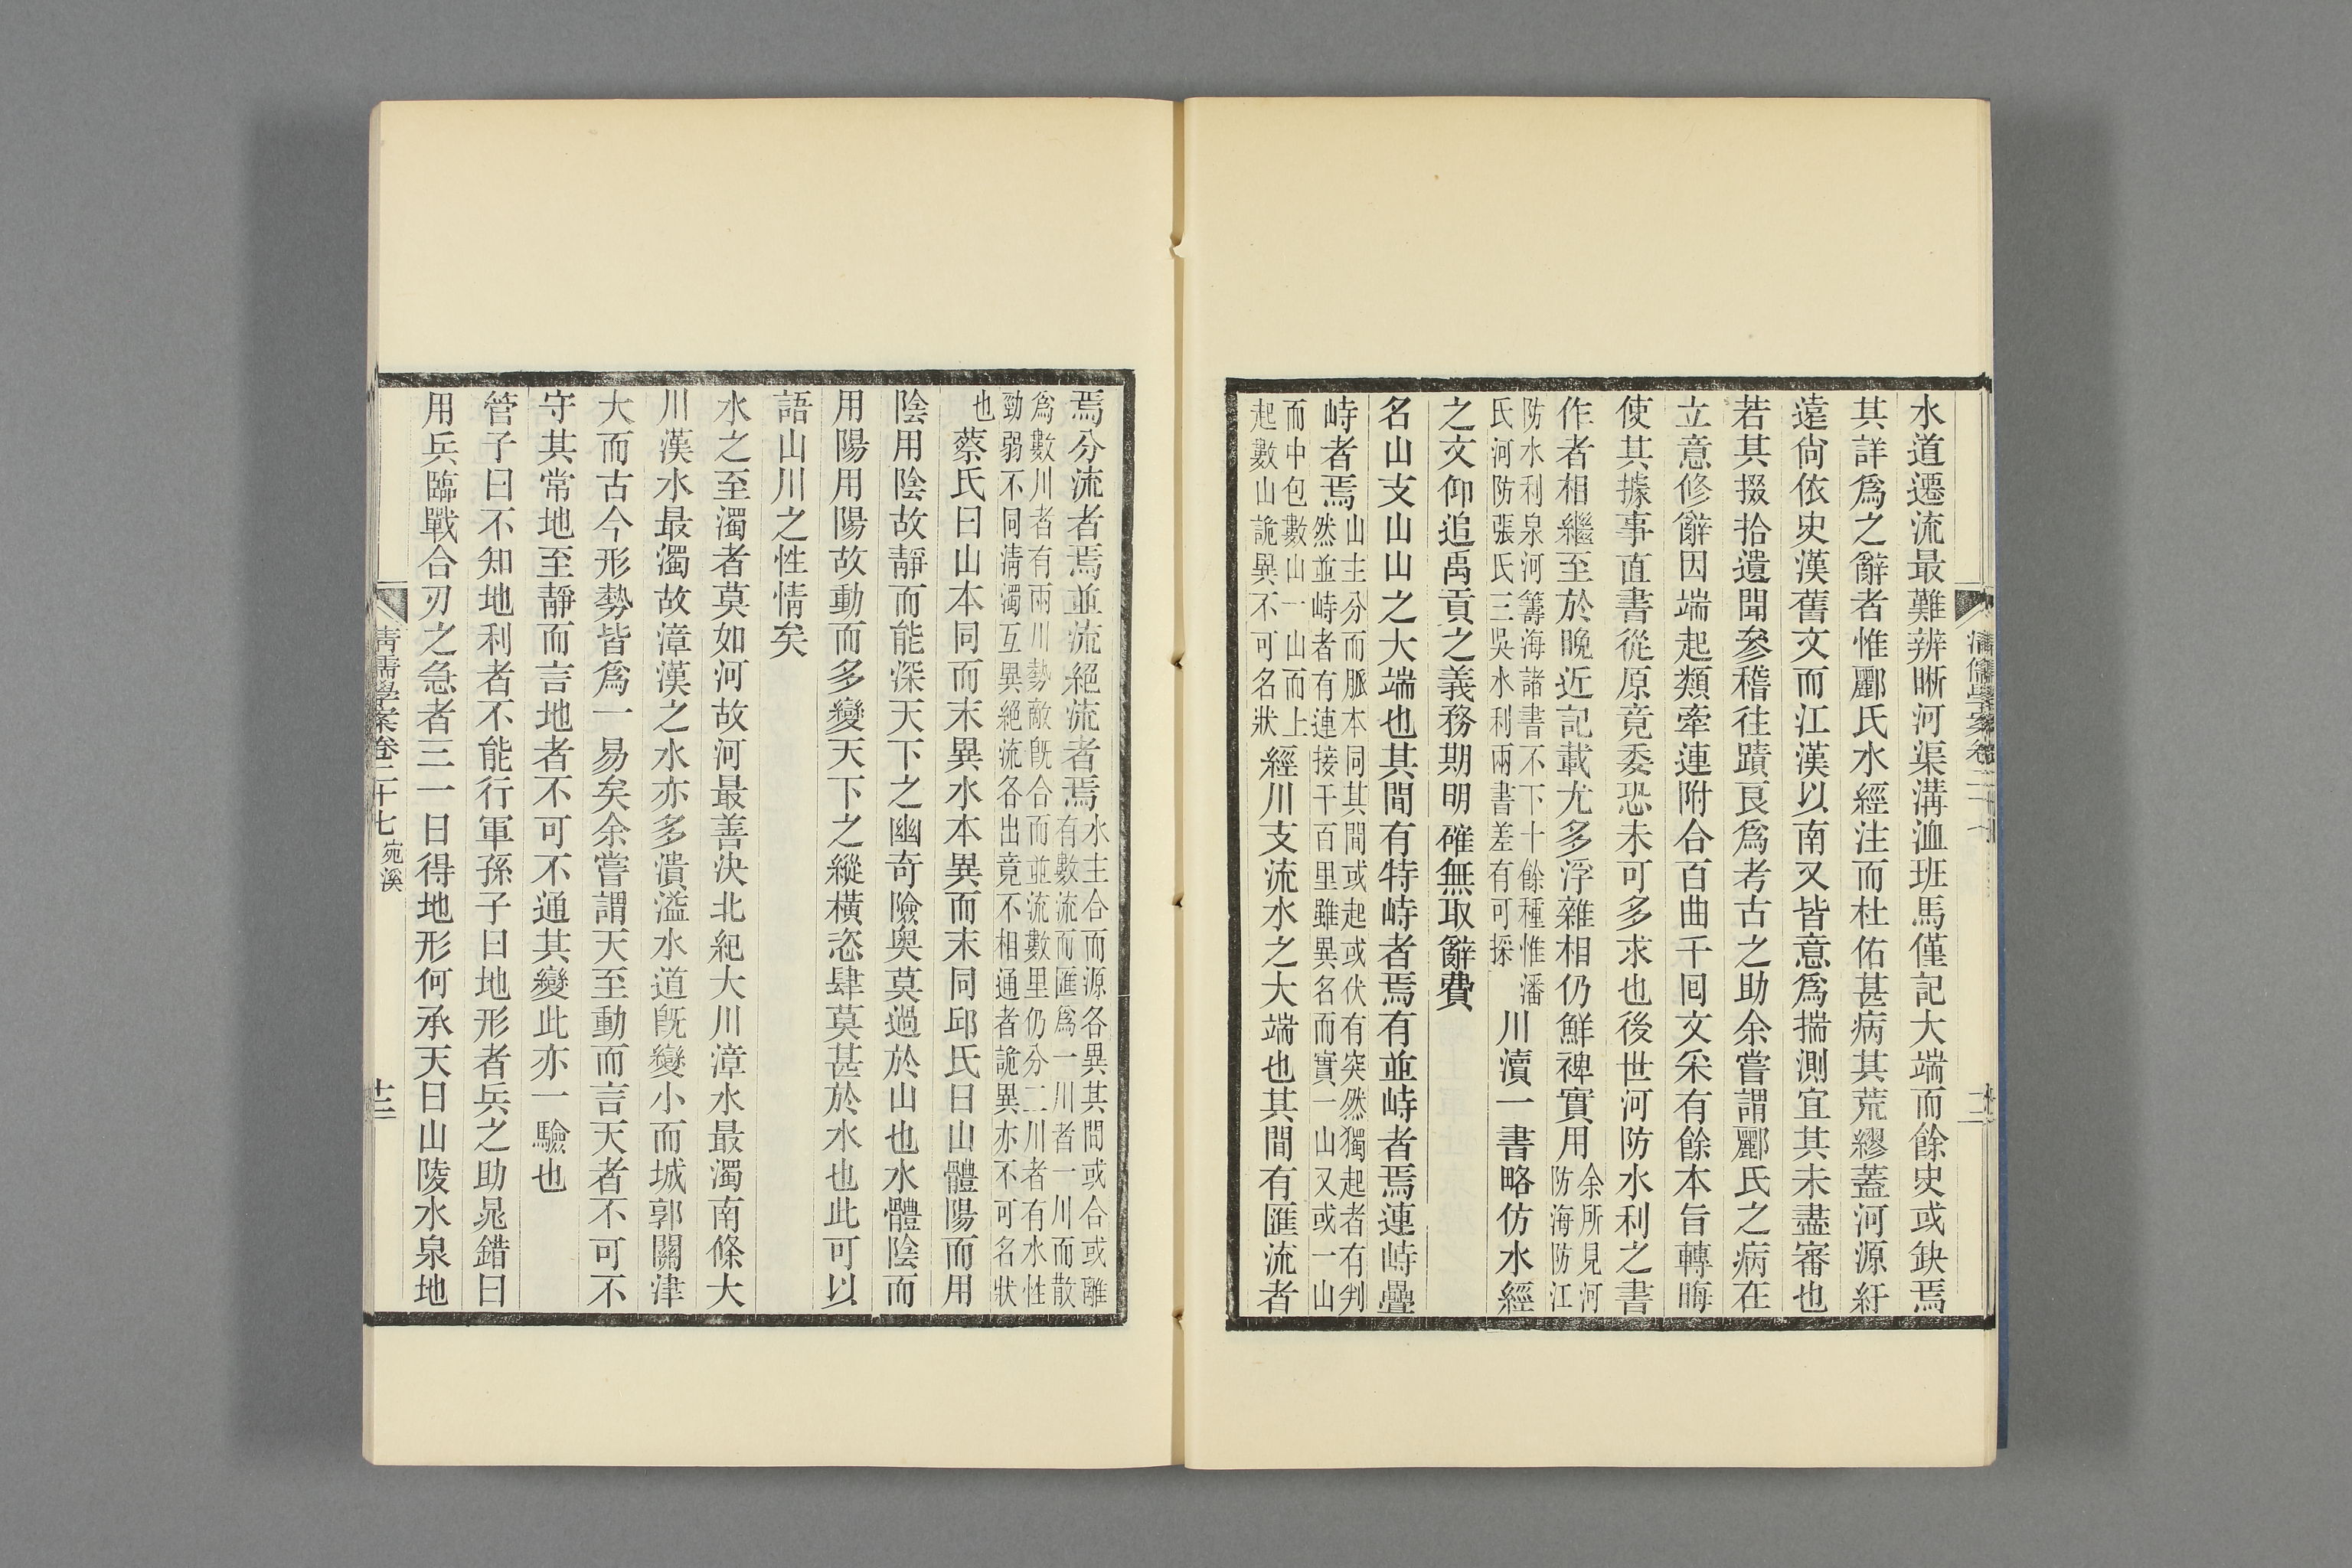 水道遷流最難辨晰河渠溝洫班馬僅記大端而餘史或缺焉
其詳爲之辭者惟酈氏水經注而杜佑甚病其荒繆蓋河源紆
遠尙依史漢舊文而江漢以南又皆意爲揣測宜其未盡審也
若其掇拾遺聞參稽往蹟良爲考古之助余嘗謂酈氏之病在
立意修辭因端起類牽連附合百曲千回文采有餘本旨轉晦
使其據事直書從原竟委恐未可多求也後世河防水利之書
作者相繼至於晚近記載尤多浮雜相仍鮮裨實用余所見河
防海防江
防水利泉河籌海諸書不下十餘種惟潘
氏河防張氏三吳水利兩書差有可採川瀆一書略仿水經
之文仰追禹貢之義務期明確無取辭費
名山支山山之大端也其間有特峙者焉有並峙者焉連峙疊
峙者焉山主分而脈本同其間或起或伏有突然獨起者有判
然並峙者有連接千百里雖異名而實一山又或一山
而中包數山一山而上
起數山詭異不可名狀經川支流水之大端也其間有匯流者
焉分流者焉並流絕流者焉水主合而源各異其間或合或離
有數流而匯爲一川者一川而散
爲數川者有兩川勢敵旣合而並流數里仍分二川者有水性
勁弱不同淸濁互異絕流各出竟不相通者詭異亦不可名狀
也蔡氏曰山本同而末異水本異而末同邱氏曰山體陽而用
陰用陰故靜而能深天下之幽奇險奧莫過於山也水體陰而
用陽用陽故動而多變天下之縱橫恣肆莫甚於水也此可以
語山川之性情矣
水之至濁者莫如河故河最善決北紀大川漳水最濁南條大
川漢水最濁故漳漢之水亦多潰溢水道旣變小而城郭關津
大而古今形勢皆爲一易矣余嘗謂天至動而言天者不可不
守其常地至靜而言地者不可不通其變此亦一驗也
管子曰不知地利者不能行軍孫子曰地形者兵之助晁錯曰
用兵臨戰合刃之急者三一曰得地形何承天曰山陵水泉地
清儒學案卷二十七 宛溪
十三